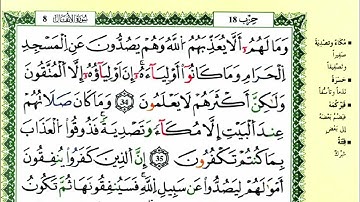 8 سورة الأنفال حزب 18
وَمَا لَهُمْ أَلَّا يُعَذِّبَهُمُ اللَّهُ وَهُمْ يَصُدُّونَ عَنِ الْمَسْجِدِ
الْحَرَامِ وَمَا كَانُوا أَوْلِيَاءَهُ إِنْ أَوْلِيَاؤُهُ إِلَّا الْمُتَّقُونَ
وَلَكِنَّ أَكْثَرَهُمْ لَا يَعْلَمُونَ 34 وَمَا كَانَ صَلَاتُهُمْ
عِنْدَ الْبَيْتِ إِلَّا مُكَاءً وَتَصْدِيَةً فَذُوقُوا الْعَذَابَ
بِمَا كُنْتُمْ تَكْفُرُونَ 35 إِنَّ الَّذِينَ كَفَرُوا يُنْفِقُونَ
أَمْوَالَهُمْ لِيَصُدُّوا عَنْ سَبِيلِ اللَّهِ فَسَيُنْفِقُونَهَا ثُمَّ تَكُونُ
مُكَاءً وَتَصْدِيَةً
صَفِيراً
وَتَصْفِيقاً
حَسْرَةً
نَدَماً وَتَأَسُّفاً
فَيَرْكُمَهُ
فَيَضُمَّ بَعْضَهُ
فِتْنَةٌ
شِرْكٌ